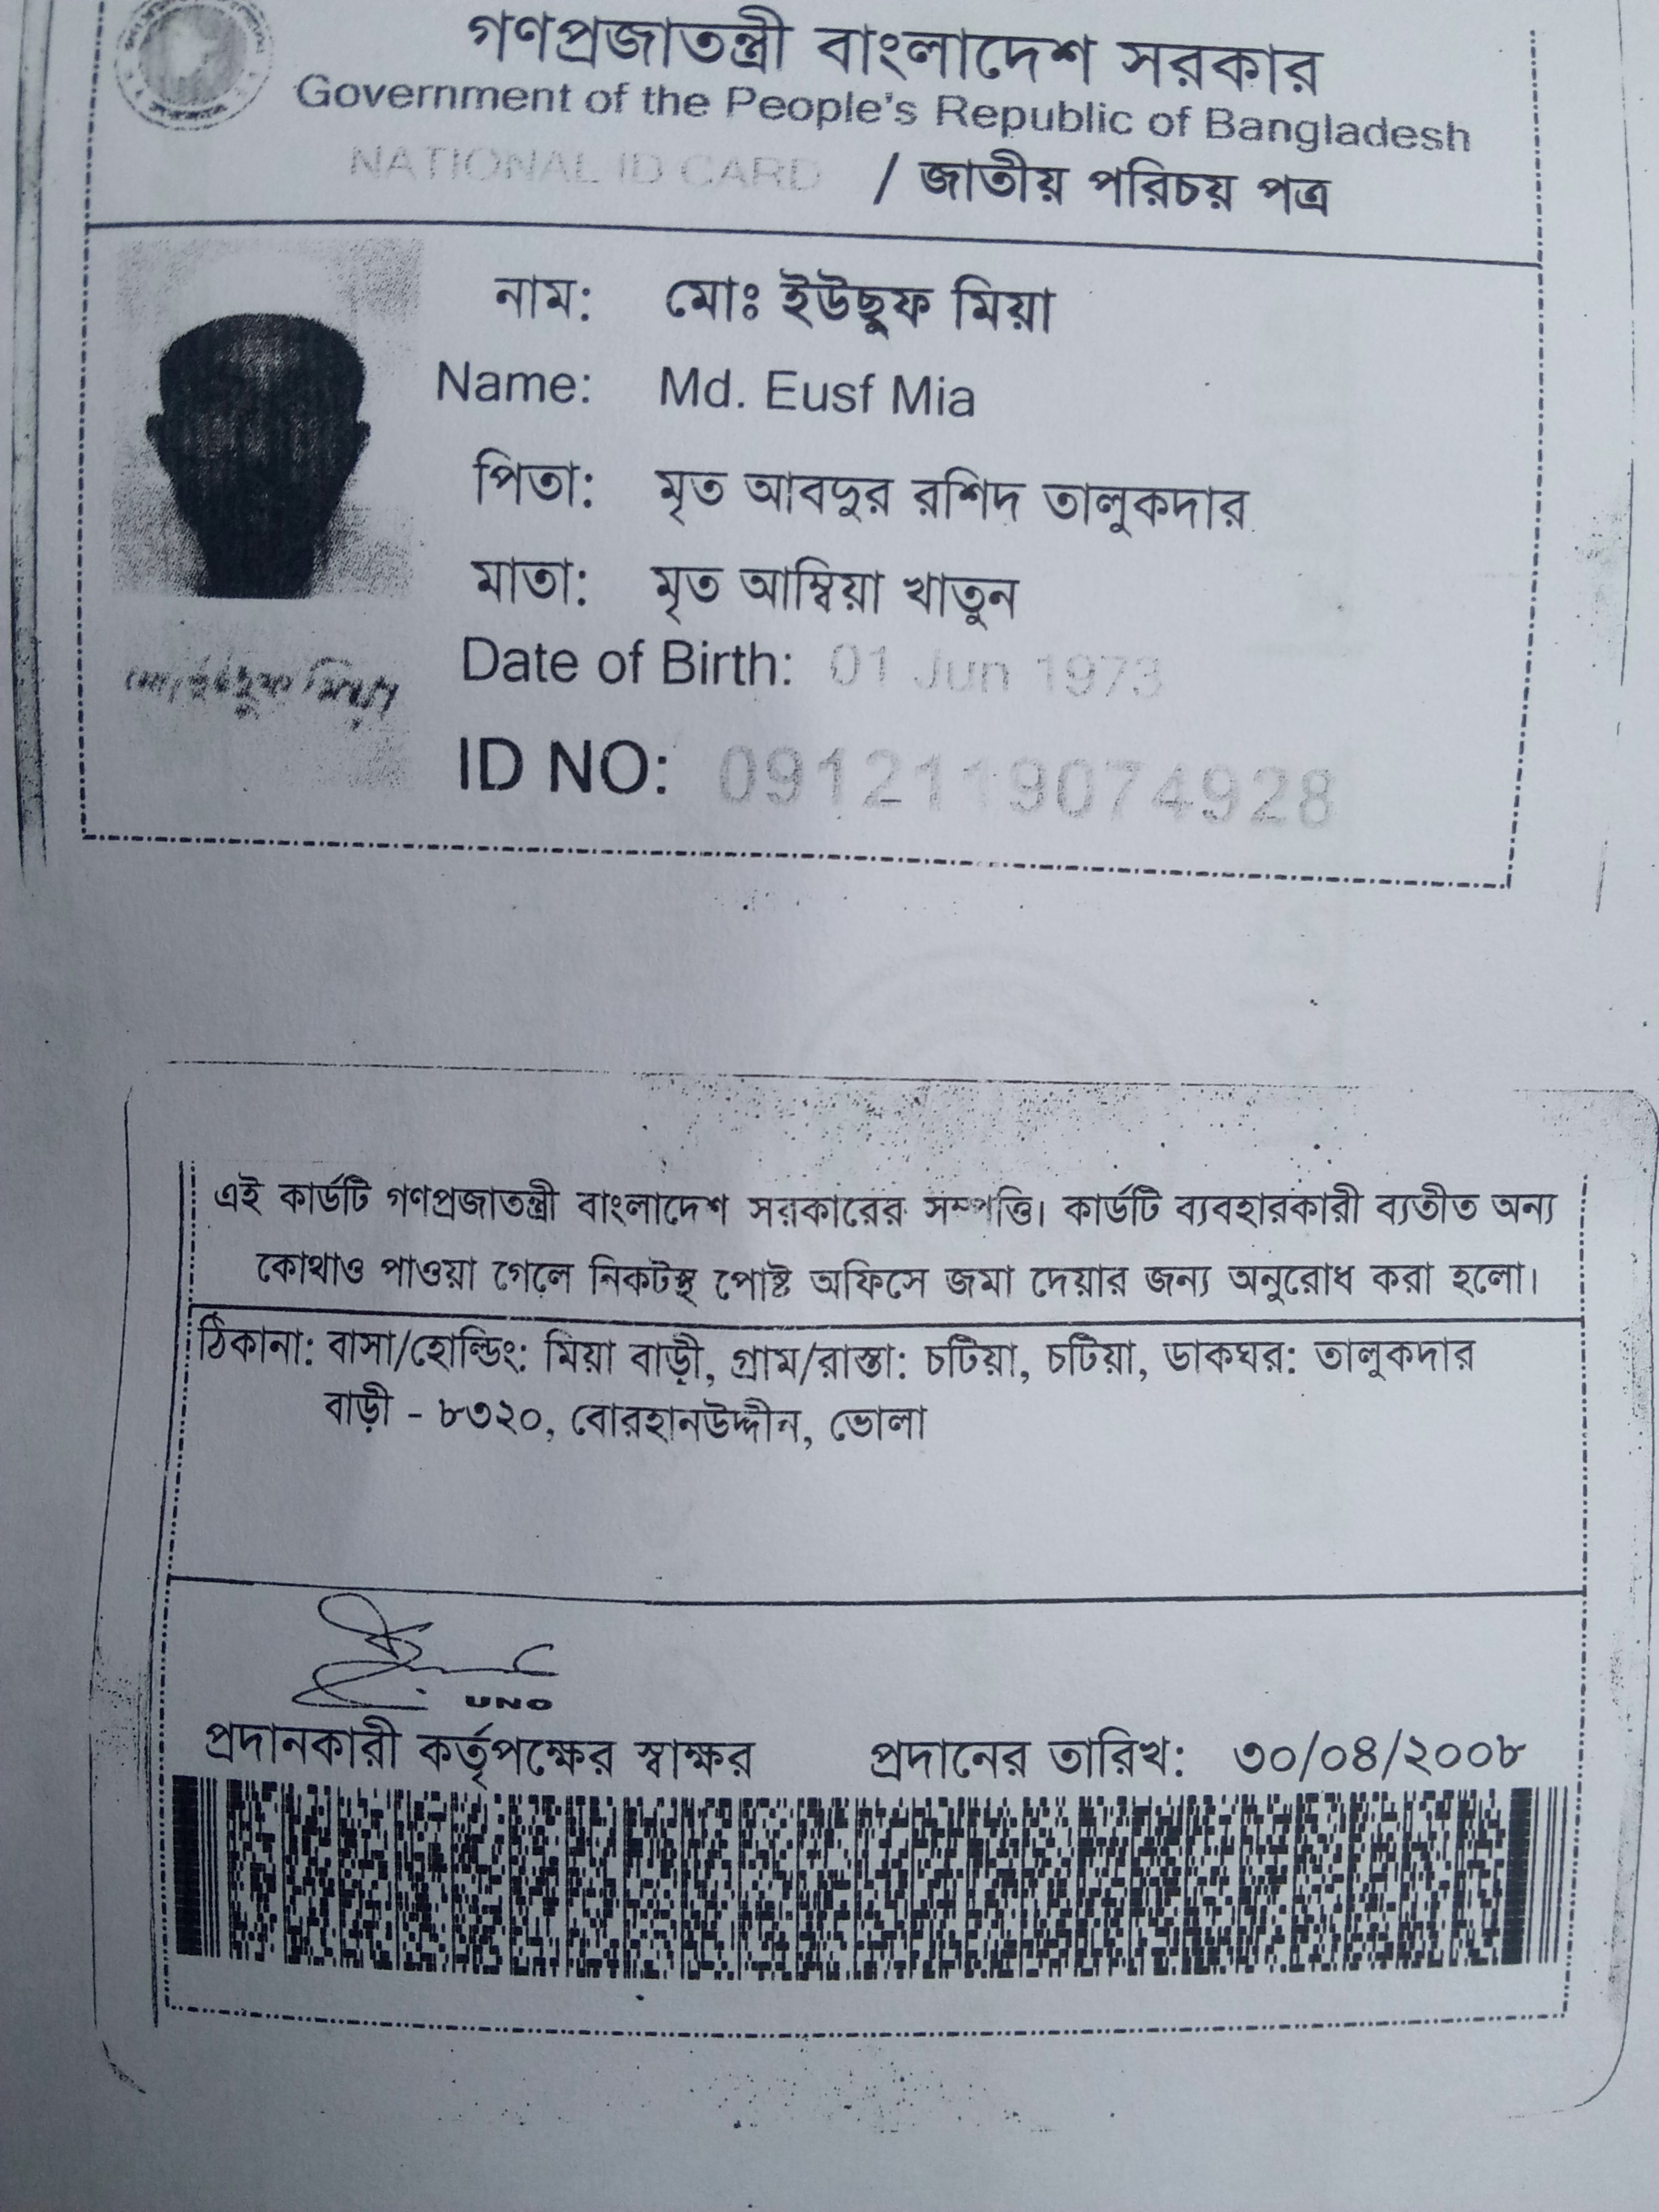 গণপ্রজাতন্ত্রী বাংলাদেশ সরকার
Government of the People's Republic of Bangladesh
NATIONAL ID CARD / জাতীয় পরিচয় পত্র
নাম: মোঃ ইউছুফ মিয়া
Name: Md. Eusf Mia
পিতা: মৃত আবদুর রশিদ তালুকদার
মাতা: মৃত আম্বিয়া খাতুন
Date of Birth: 01 Jun 1973
মোঃ ইউছুফ মিয়া
ID NO: 0912119074928
এই কার্ডটি গণপ্রজাতন্ত্রী বাংলাদেশ সরকারের সম্পত্তি। কার্ডটি ব্যবহারকারী ব্যতীত অন্য
কোথাও পাওয়া গেলে নিকটস্থ পোষ্ট অফিসে জমা দেয়ার জন্য অনুরোধ করা হলো।
ঠিকানা: বাসা/হোল্ডিং: মিয়া বাড়ী, গ্রাম/রাস্তা: চটিয়া, চটিয়া, ডাকঘর: তালুকদার
বাড়ী - ৮৩২০, বোরহানউদ্দীন, ভোলা
UNO
প্রদানকারী কর্তৃপক্ষের স্বাক্ষর প্রদানের তারিখ: ৩০/০৪/২০০৮